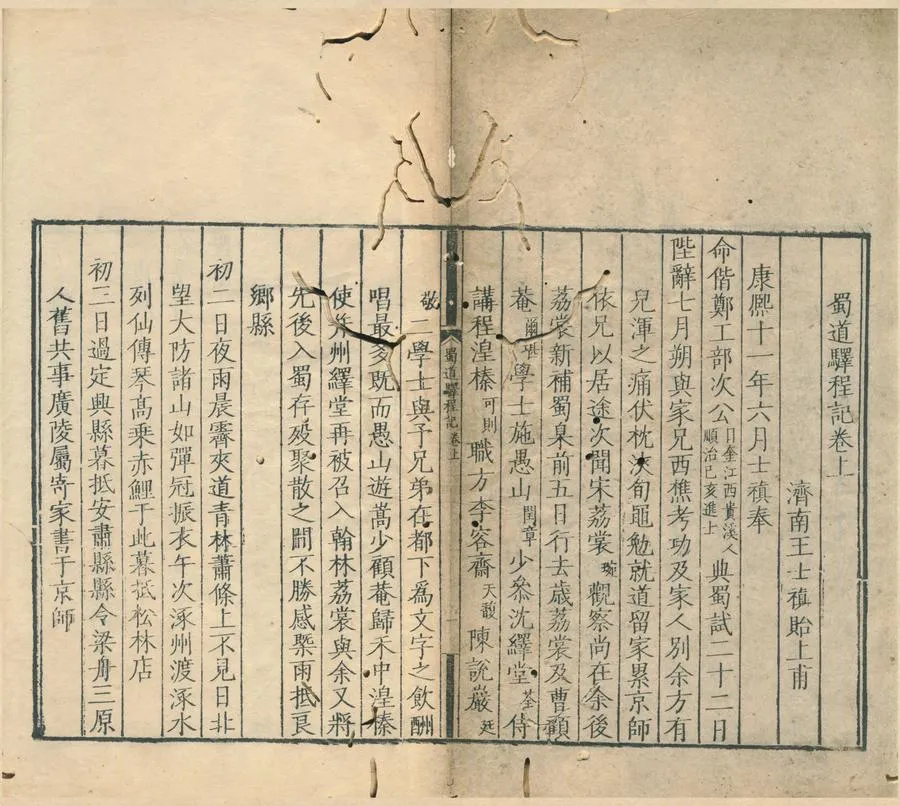 蜀道驛程記卷上
濟南王士禛貽上甫
康熙十一年六月士禛奉
命偕鄭工部次公日奎江西貴溪人順治己亥進士典蜀試二十二日
陛辭七月朔與家兄西樵考功及家人別余方有
兒渾之痛伏枕浹旬黽勉就道留家累京師
依兄以居途次聞宋荔裳琬觀察尚在余後
荔裳新補蜀臬前五日行去歲荔裳及曹顧
菴爾堪學士施愚山閏章少參沈繹堂荃侍
講程湟榛可則職方李容齋天馥陳說巖廷
蜀道驛程記 卷上 一
敬二學士與予兄弟在都下爲文字之飲酬
唱最多既而愚山遊嵩少顧菴歸禾中湟榛
使并州繹堂再被召入翰林荔裳與余又將
先後入蜀存歿聚散之間不勝感槩雨抵良
鄉縣
初二日夜雨晨霽夾道青林蕭條上不見日北
望大防諸山如彈冠振衣午次涿州渡涿水
列仙傳琴高乘赤鯉于此暮抵松林店
初三日過定興縣暮抵安肅縣縣令梁舟三原
人舊共事廣陵屬寄家書于京師